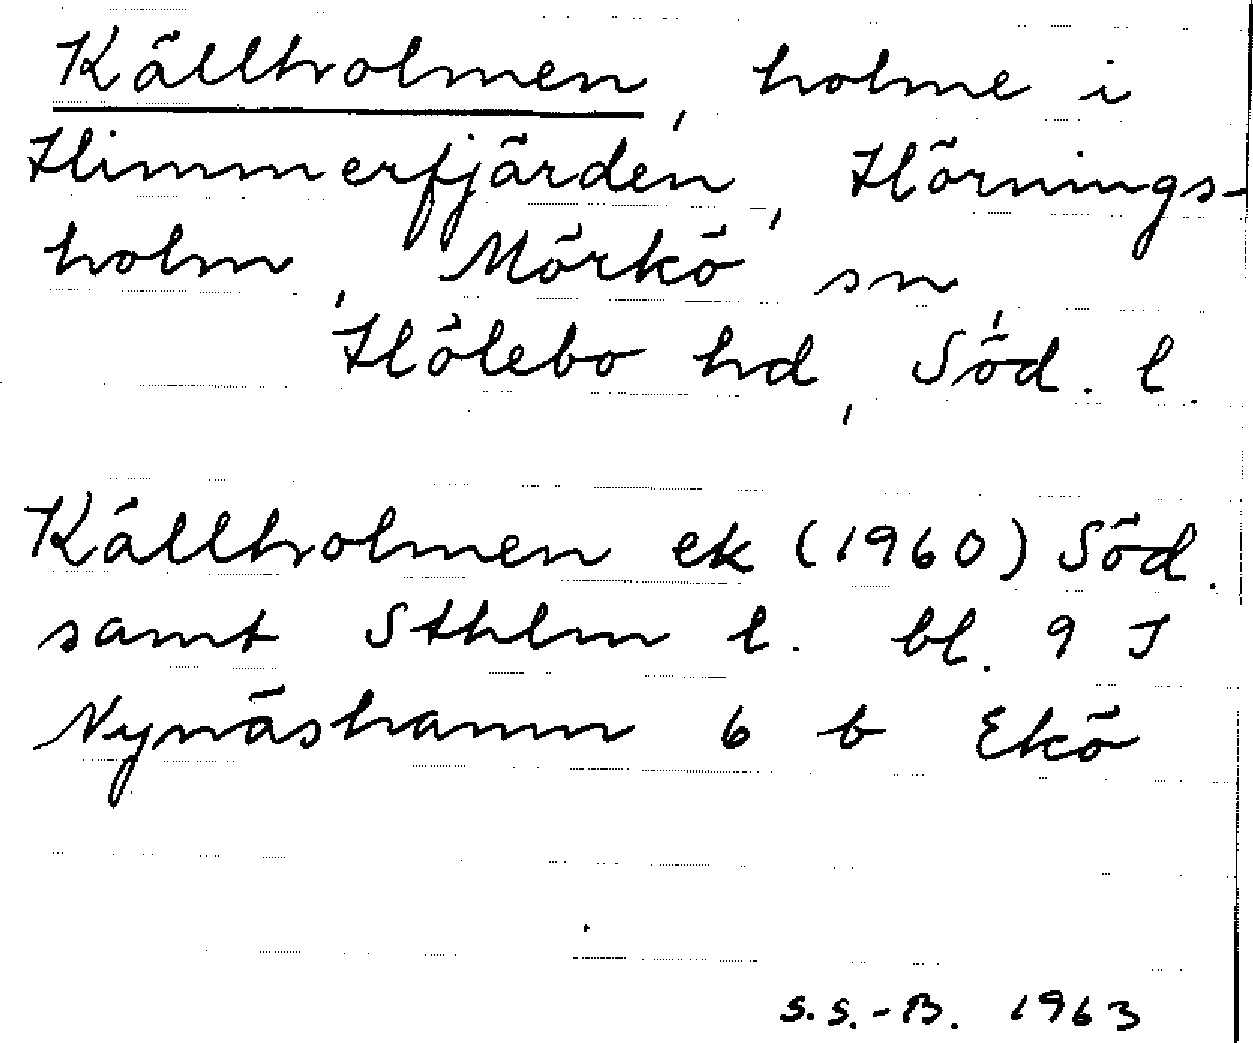 Källholmen, holme i
Himmerfjärden, Hörnings-
holm, Mörkö sn,
Hölebo hd, Söd. l.
Källholmen ek (1960) Söd.
samt Sthlm l. bl. 9 I
Nynäshamn 6 b Ekö
S.S.-B. 1963